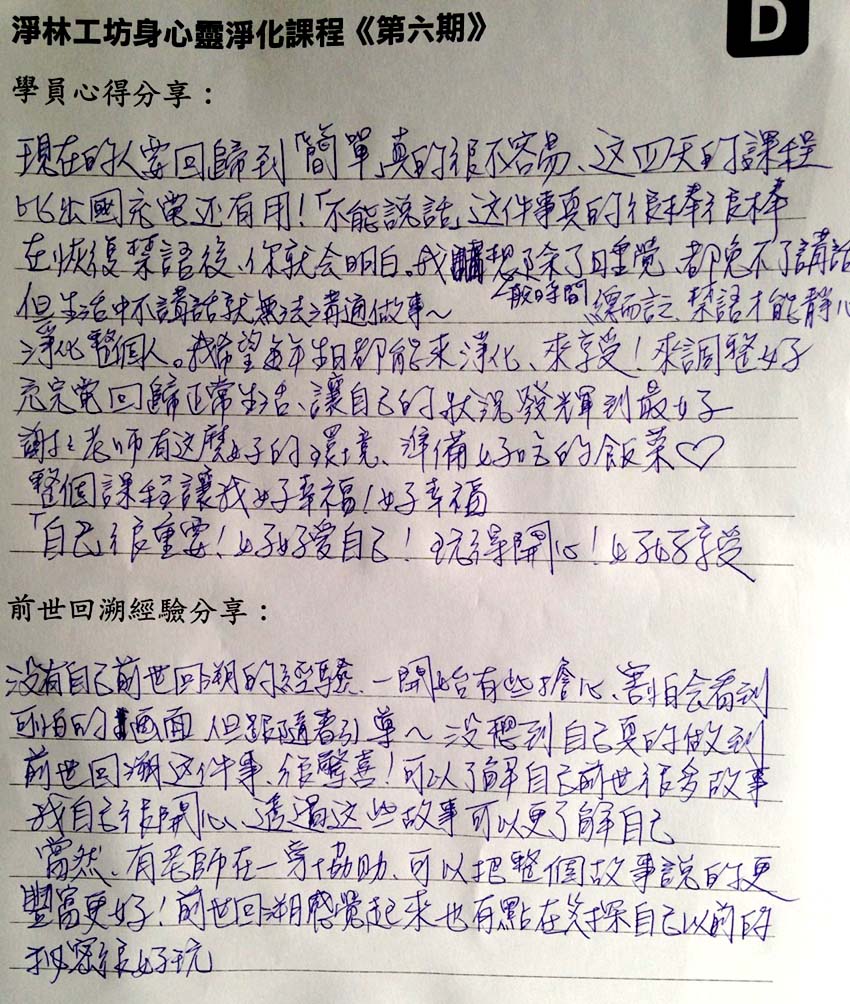 D
淨林工坊身心靈淨化課程《第六期》
學員心得分享：
現在的人要回歸到「簡單」真的很不容易、这四天的課程
比出國充電还有用！「不能說話」这件事真的很棒很棒
在恢復禁語後、你就会明白。我想除了睡覺、都免不了講話
但生活中不講話就無法溝通做事～一般時間 總而言之 禁語才能靜心
淨化整個人。我希望每年生日都能來淨化、來享受！來調整好
充完電回歸正常生活、讓自己的狀況發輝到最好
謝謝老师有这麼好的環境、準備好吃的飯菜♡
整個課程讓我好幸福！好幸福
「自己很重要！好好愛自己！玩得開心！好好享受
前世回溯經驗分享：
没有自己前世回溯的經驗、一開始有些擔心、害怕会看到
可怕的画面 但跟隨著引導～没想到自己真的做到
前世回溯这件事、很驚喜！可以了解自己前世很多故事
我自己很開心、透過这些故事可以更了解自己
當然、有老師在一旁協助、可以把整個故事說的更
豐富更好！前世回溯感覺起來也有點在窺探自己以前的
秘密很好玩